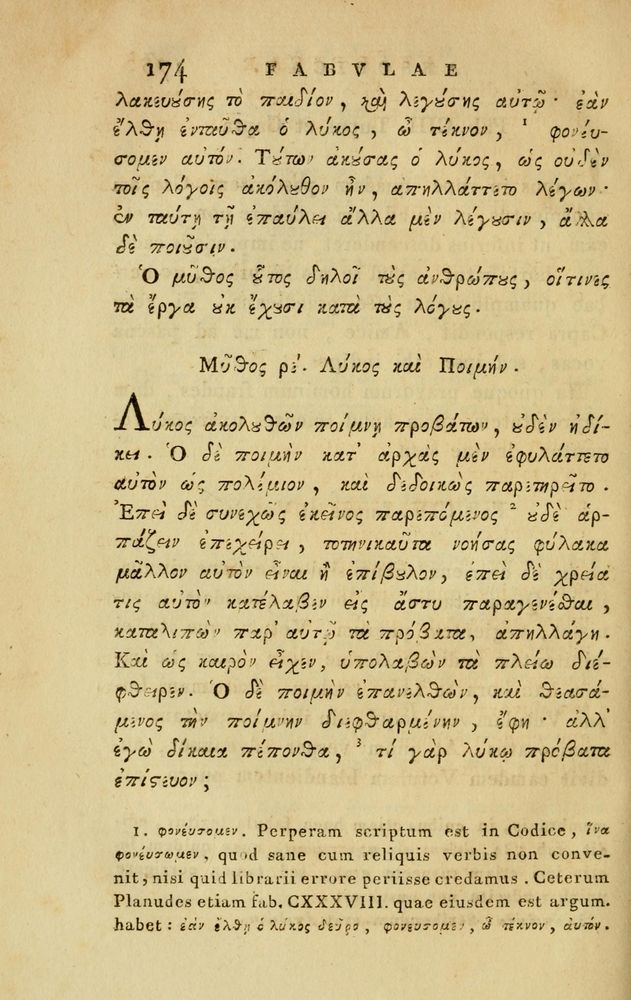 174 FABVLAE
λακευούσης τὸ παιδίον, καὶ λεγούσης αὐτῷ· ἐὰν
ἔλθῃ ἐνταῦθα ὁ λύκος, ὦ τέκνον, ¹ φονεύ-
σομεν αὐτόν. Τούτων ἀκούσας ὁ λύκος, ὡς οὐδὲν
τοῖς λόγοις ἀκόλουθον ἦν, ἀπηλλάττετο λέγων·
ἐν ταύτῃ τῇ ἐπαύλει ἄλλα μὲν λέγουσιν, ἄλλα
δὲ ποιοῦσιν.
Ὁ μῦθος οὗτος δηλοῖ τοὺς ἀνθρώπους, οἵτινες
τὰ ἔργα οὐκ ἔχουσι κατὰ τοὺς λόγους.
Μῦθος ρέ. Λύκος καὶ Ποιμήν.
Λύκος ἀκολουθῶν ποίμνῃ προβάτων, οὐδὲν ἠδί-
κει. Ὁ δὲ ποιμὴν κατ' ἀρχὰς μὲν ἐφυλάττετο
αὐτὸν ὡς πολέμιον, καὶ δεδοικὼς παρετηρεῖτο.
Ἐπεὶ δὲ συνεχῶς ἐκεῖνος παρεπόμενος ² οὐδὲ ἁρ-
πάζειν ἐπεχείρει, τοτηνικαῦτα νοήσας φύλακα
μᾶλλον αὐτὸν εἶναι ἢ ἐπίβουλον, ἐπεὶ δὲ χρεία
τις αὐτὸν κατέλαβεν εἰς ἄστυ παραγενέσθαι,
καταλιπὼν παρ' αὐτῷ τὰ πρόβατα, ἀπηλλάγη.
Καὶ ὡς καιρὸν εἶχεν, ὑπολαβὼν τὰ πλείω διέ-
φθειρεν. Ὁ δὲ ποιμὴν ἐπανελθὼν, καὶ θεασά-
μενος τὴν ποίμνην διεφθαρμένην, ἔφη· ἀλλ'
ἐγὼ δίκαια πέπονθα, ³ τί γὰρ λύκῳ πρόβατα
ἐπίστευον;
1. φονεύσομεν. Perperam scriptum est in Codice, ἵνα
φονεύσωμεν, quod sane cum reliquis verbis non conve-
nit, nisi quid librarii errore periisse credamus. Ceterum
Planudes etiam fab. CXXXVIII. quae eiusdem est argum.
habet: ἐὰν ἔλθῃ ὁ λύκος δεῦρο, φονεύσομεν, ὦ τέκνον, αὐτόν.